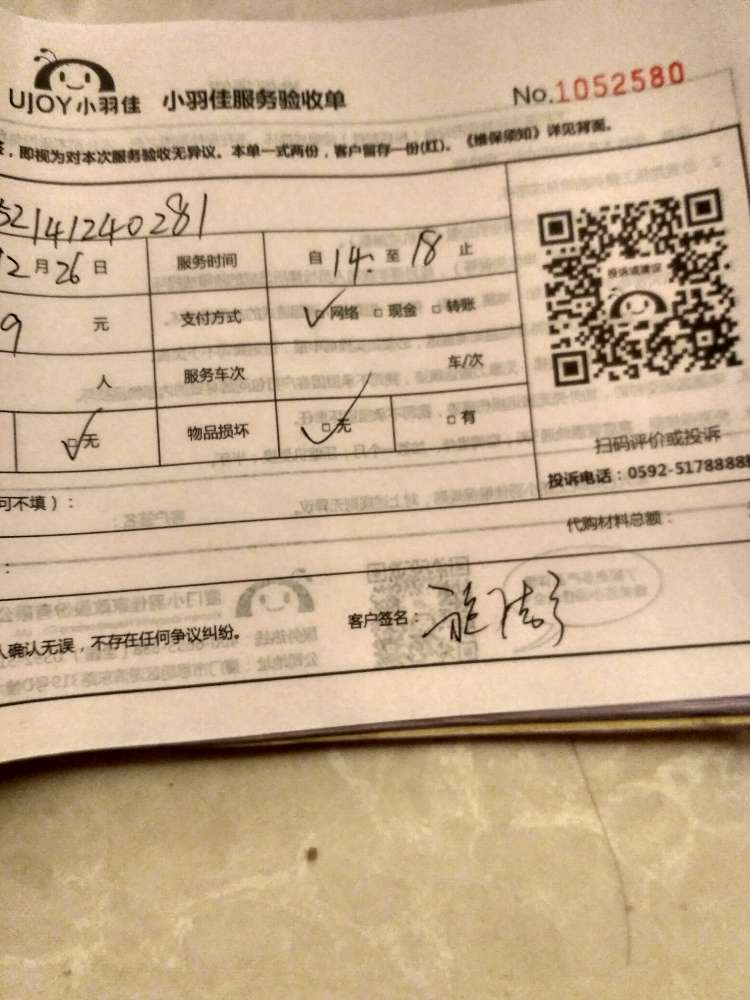 UJOY小羽佳 小羽佳服务验收单 No.1052580
，即视为对本次服务验收无异议。本单一式两份，客户留存一份(红)。《维保须知》详见背面。
52141240281
2月26日 服务时间 自14:至18止
投诉或建议
9元 支付方式 ✓□网络 □现金 □转账
人 服务车次 车/次
✓□无 物品损坏 ✓□无 □有
扫码评价或投诉
投诉电话：0592-5178888
可不填）：
代购材料总额：
：
人确认无误，不存在任何争议纠纷。 客户签名：